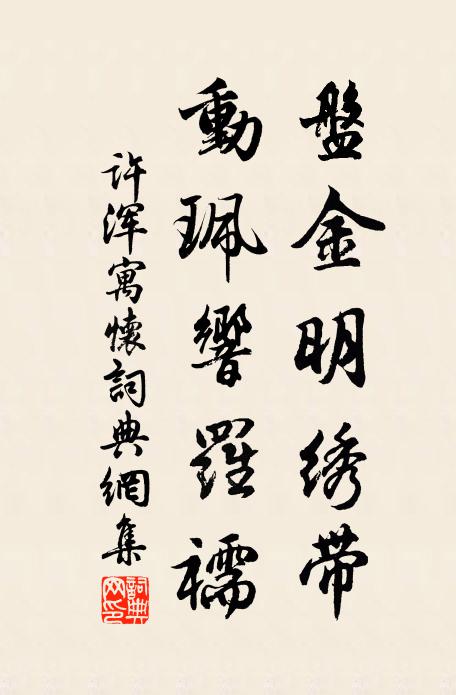 盤金明绣带
動珮響羅襦
许浑寓懷詞典網集
詞典网印